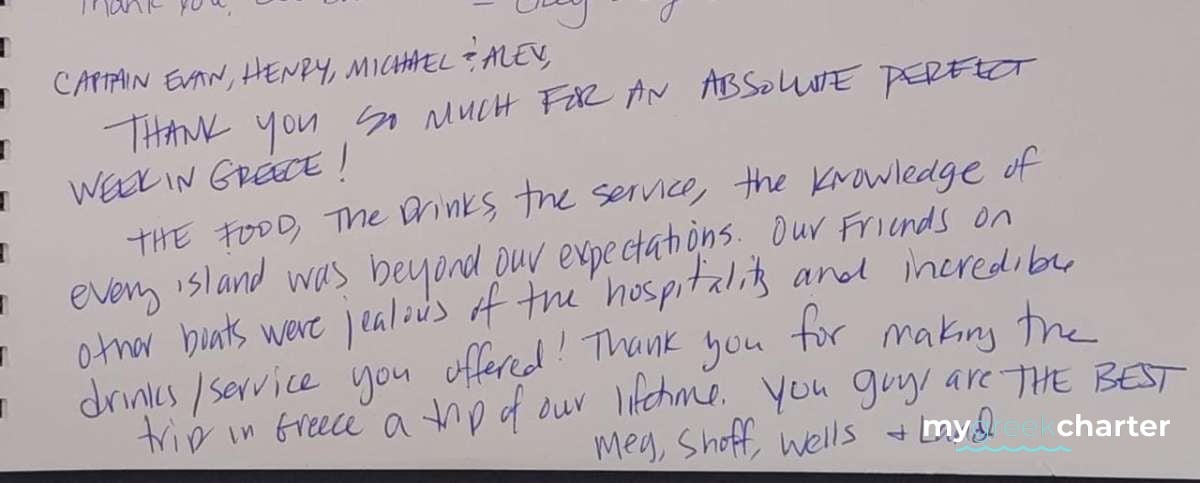 Thank you,
CAPTAIN EVAN, HENRY, MICHAEL & ALEX,
THANK YOU SO MUCH FOR AN ABSOLUTE PERFECT
WEEK IN GREECE!
THE FOOD, THE Drinks, the service, the knowledge of
every island was beyond our expectations. Our Friends on
other boats were jealous of the hospitality and incredible
drinks/service you offered! Thank you for making the
trip in Greece a trip of our lifetime. You guys are THE BEST
Meg, Shoff, Wells +
mygreekcharter